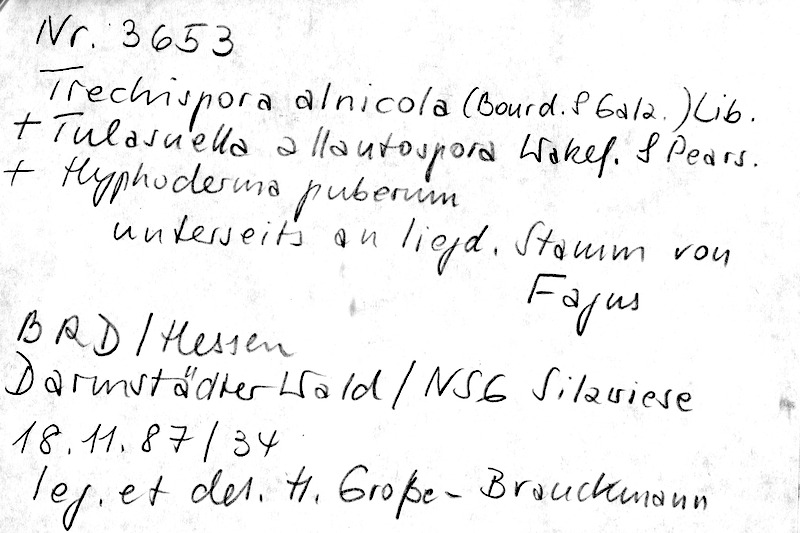 Nr. 3653
Trechispora alnicola (Bourd. & Galz.) Lib.
+ Tulasnella allantospora Wakef. & Pears.
+ Hyphoderma puberum
unterseits an liegd. Stamm von
Fagus
BRD / Hessen
Darmstädter Wald / NSG Silzwiese
18.11.87 / 34
leg. et det. H. Große-Brauckmann